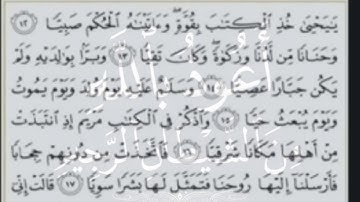 يَٰيَحْيَىٰ خُذِ ٱلْكِتَٰبَ بِقُوَّةٍ وَءَاتَيْنَٰهُ ٱلْحُكْمَ صَبِيًّا ١٢
وَحَنَانًا مِّن لَّدُنَّا وَزَكَوٰةً وَكَانَ تَقِيًّا ١٣ وَبَرًّۢا بِوَٰلِدَيْهِ وَلَمْ
يَكُن جَبَّارًا عَصِيًّا ١٤ وَسَلَٰمٌ عَلَيْهِ يَوْمَ وُلِدَ وَيَوْمَ يَمُوتُ
وَيَوْمَ يُبْعَثُ حَيًّا ١٥ وَٱذْكُرْ فِى ٱلْكِتَٰبِ مَرْيَمَ إِذِ ٱنتَبَذَتْ
مِنْ أَهْلِهَا مَكَانًا شَرْقِيًّا ١٦ فَٱتَّخَذَتْ مِن دُونِهِمْ حِجَابًا
فَأَرْسَلْنَآ إِلَيْهَا رُوحَنَا فَتَمَثَّلَ لَهَا بَشَرًا سَوِيًّا ١٧ قَالَتْ إِنِّىٓ
أعوذ بالله
من الشيطان الرجيم